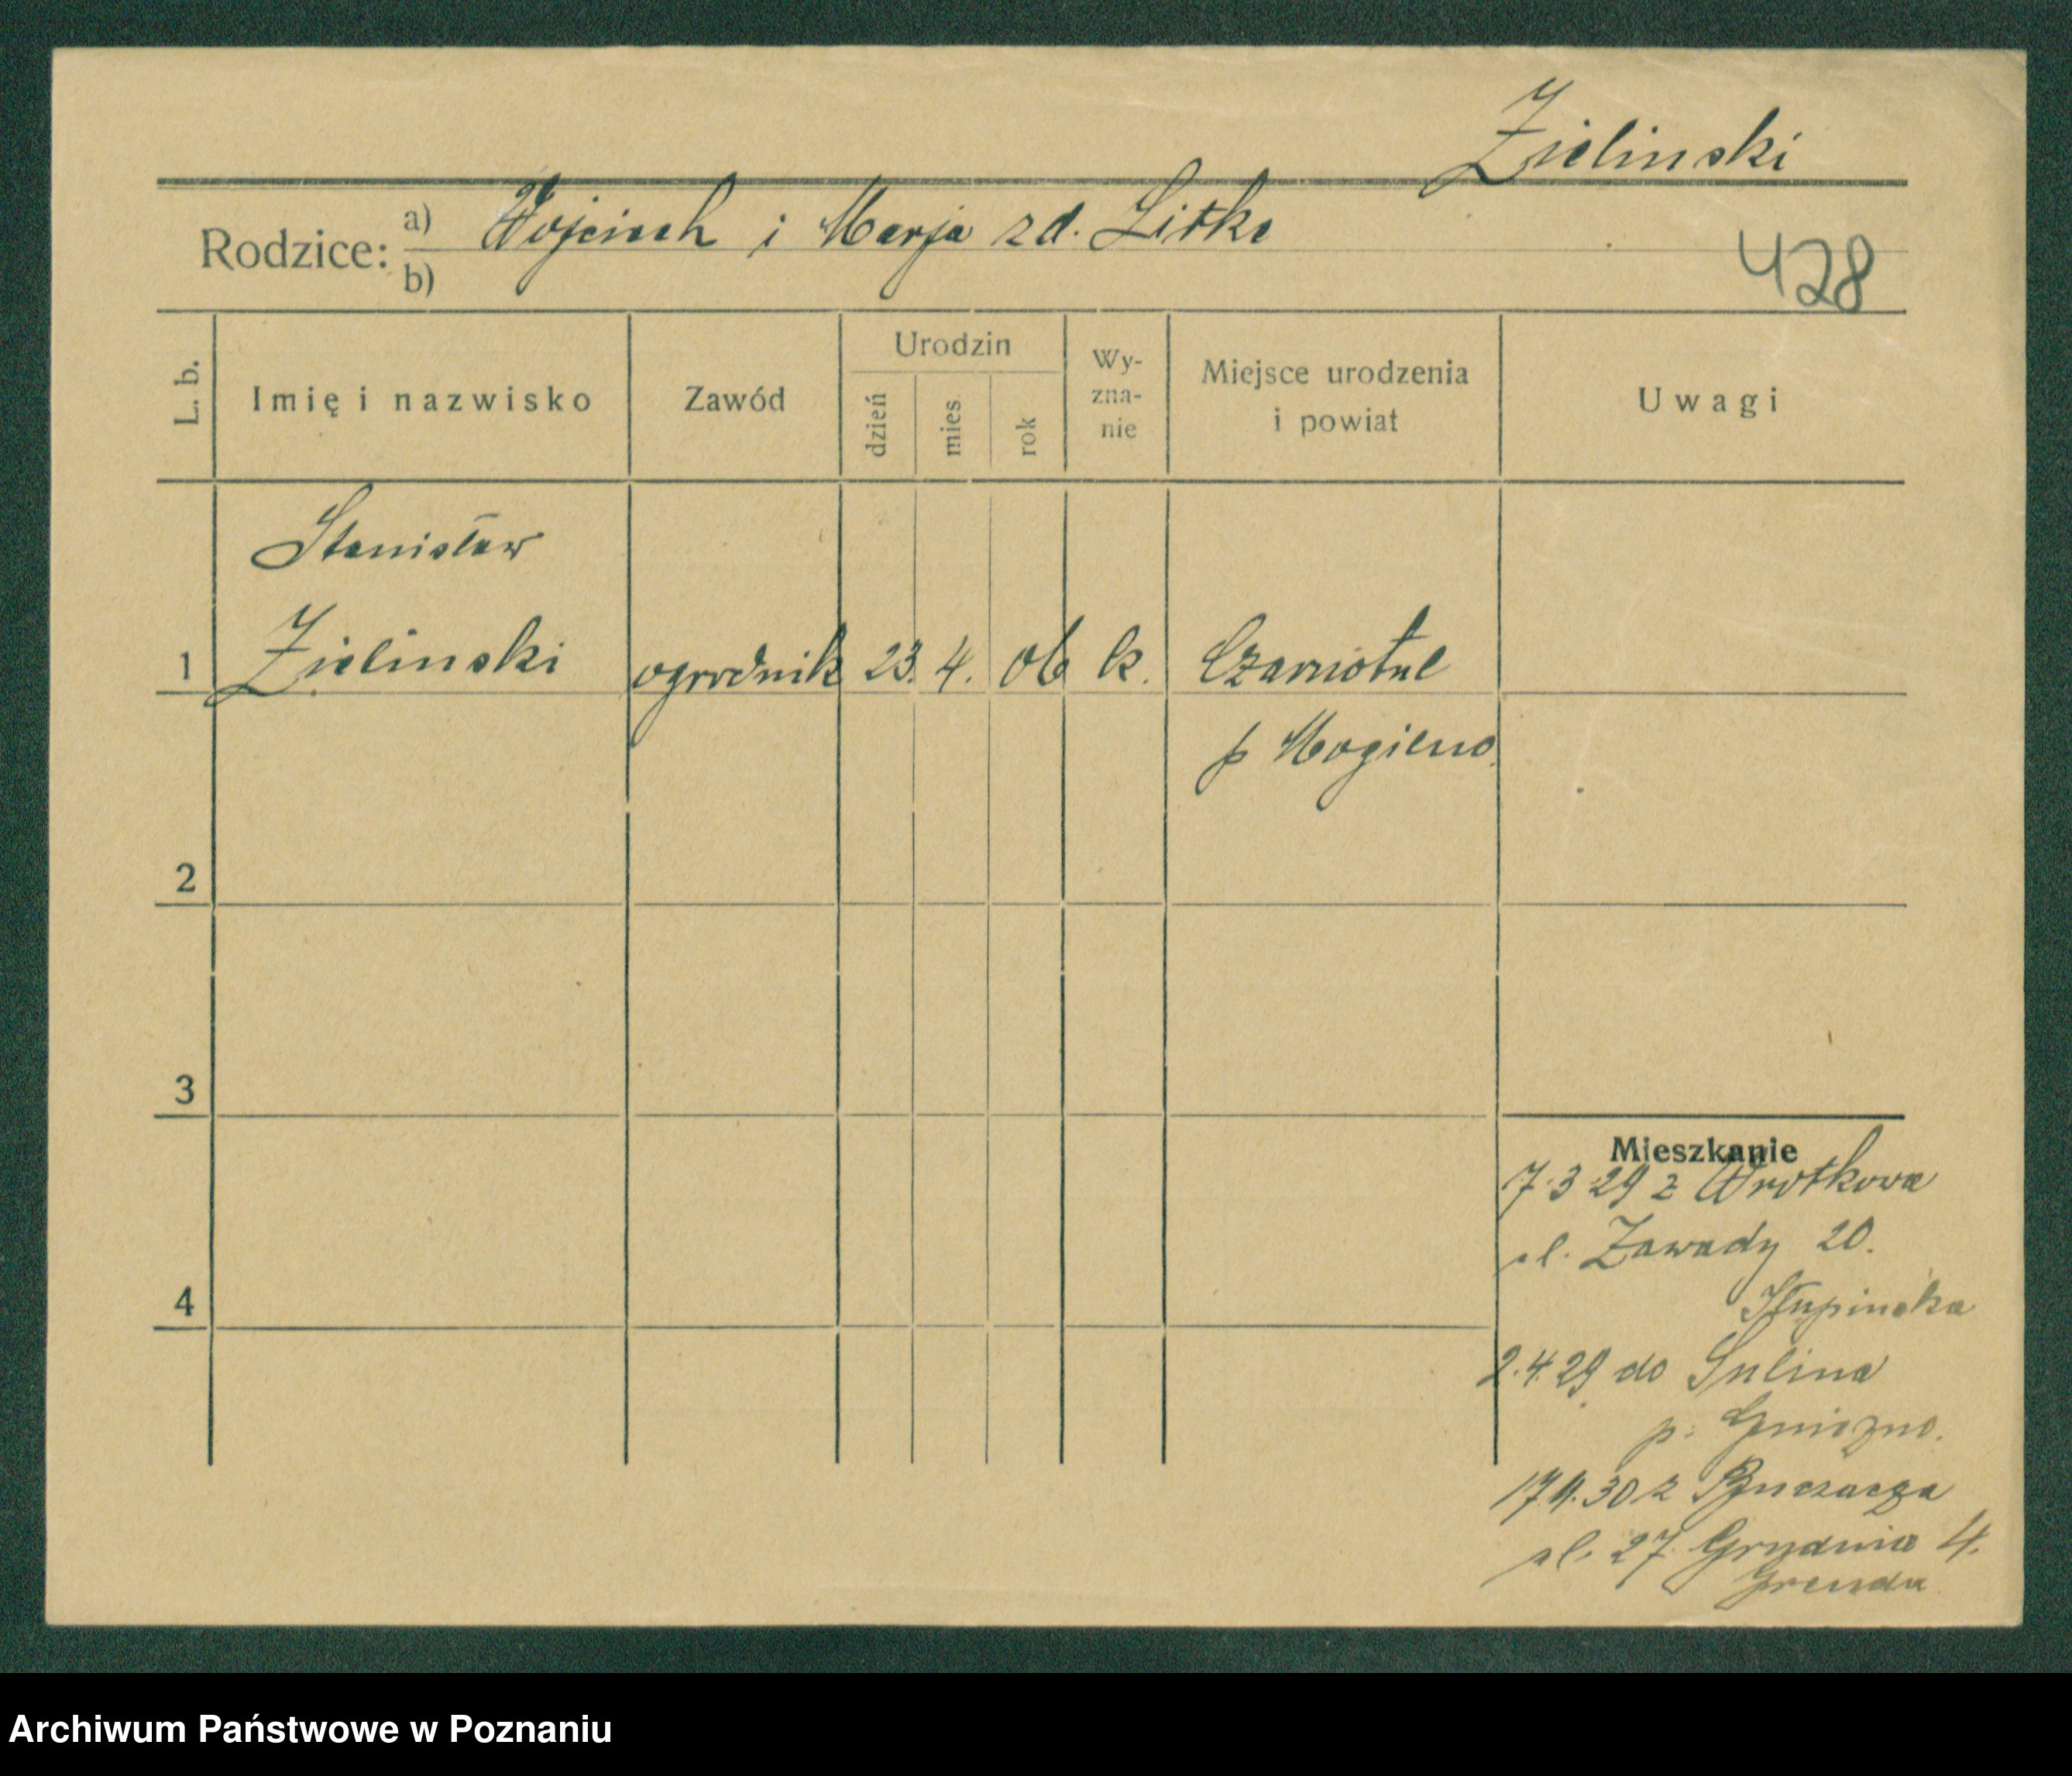 Zielinski
Rodzice: a) Wojciech i Marja zd. Litke
b)
428
L. b.
Imię i nazwisko
Zawód
Urodzin
dzień
mies.
rok
Wy-
zna-
nie
Miejsce urodzenia
i powiat
Uwagi
Stanisław
1 Zielinski ogrodnik 23. 4. 06 k. Czarnotul
p Mogilno
2
3
4
Mieszkanie
7.3 29 z Wrotkowa
ul. Zawady 20.
Słupinska
2.4.29 do Sulina
p. Gniezno.
30 z Buczacza
ul. 27 Grudnia 4.
Grenda
Archiwum Państwowe w Poznaniu